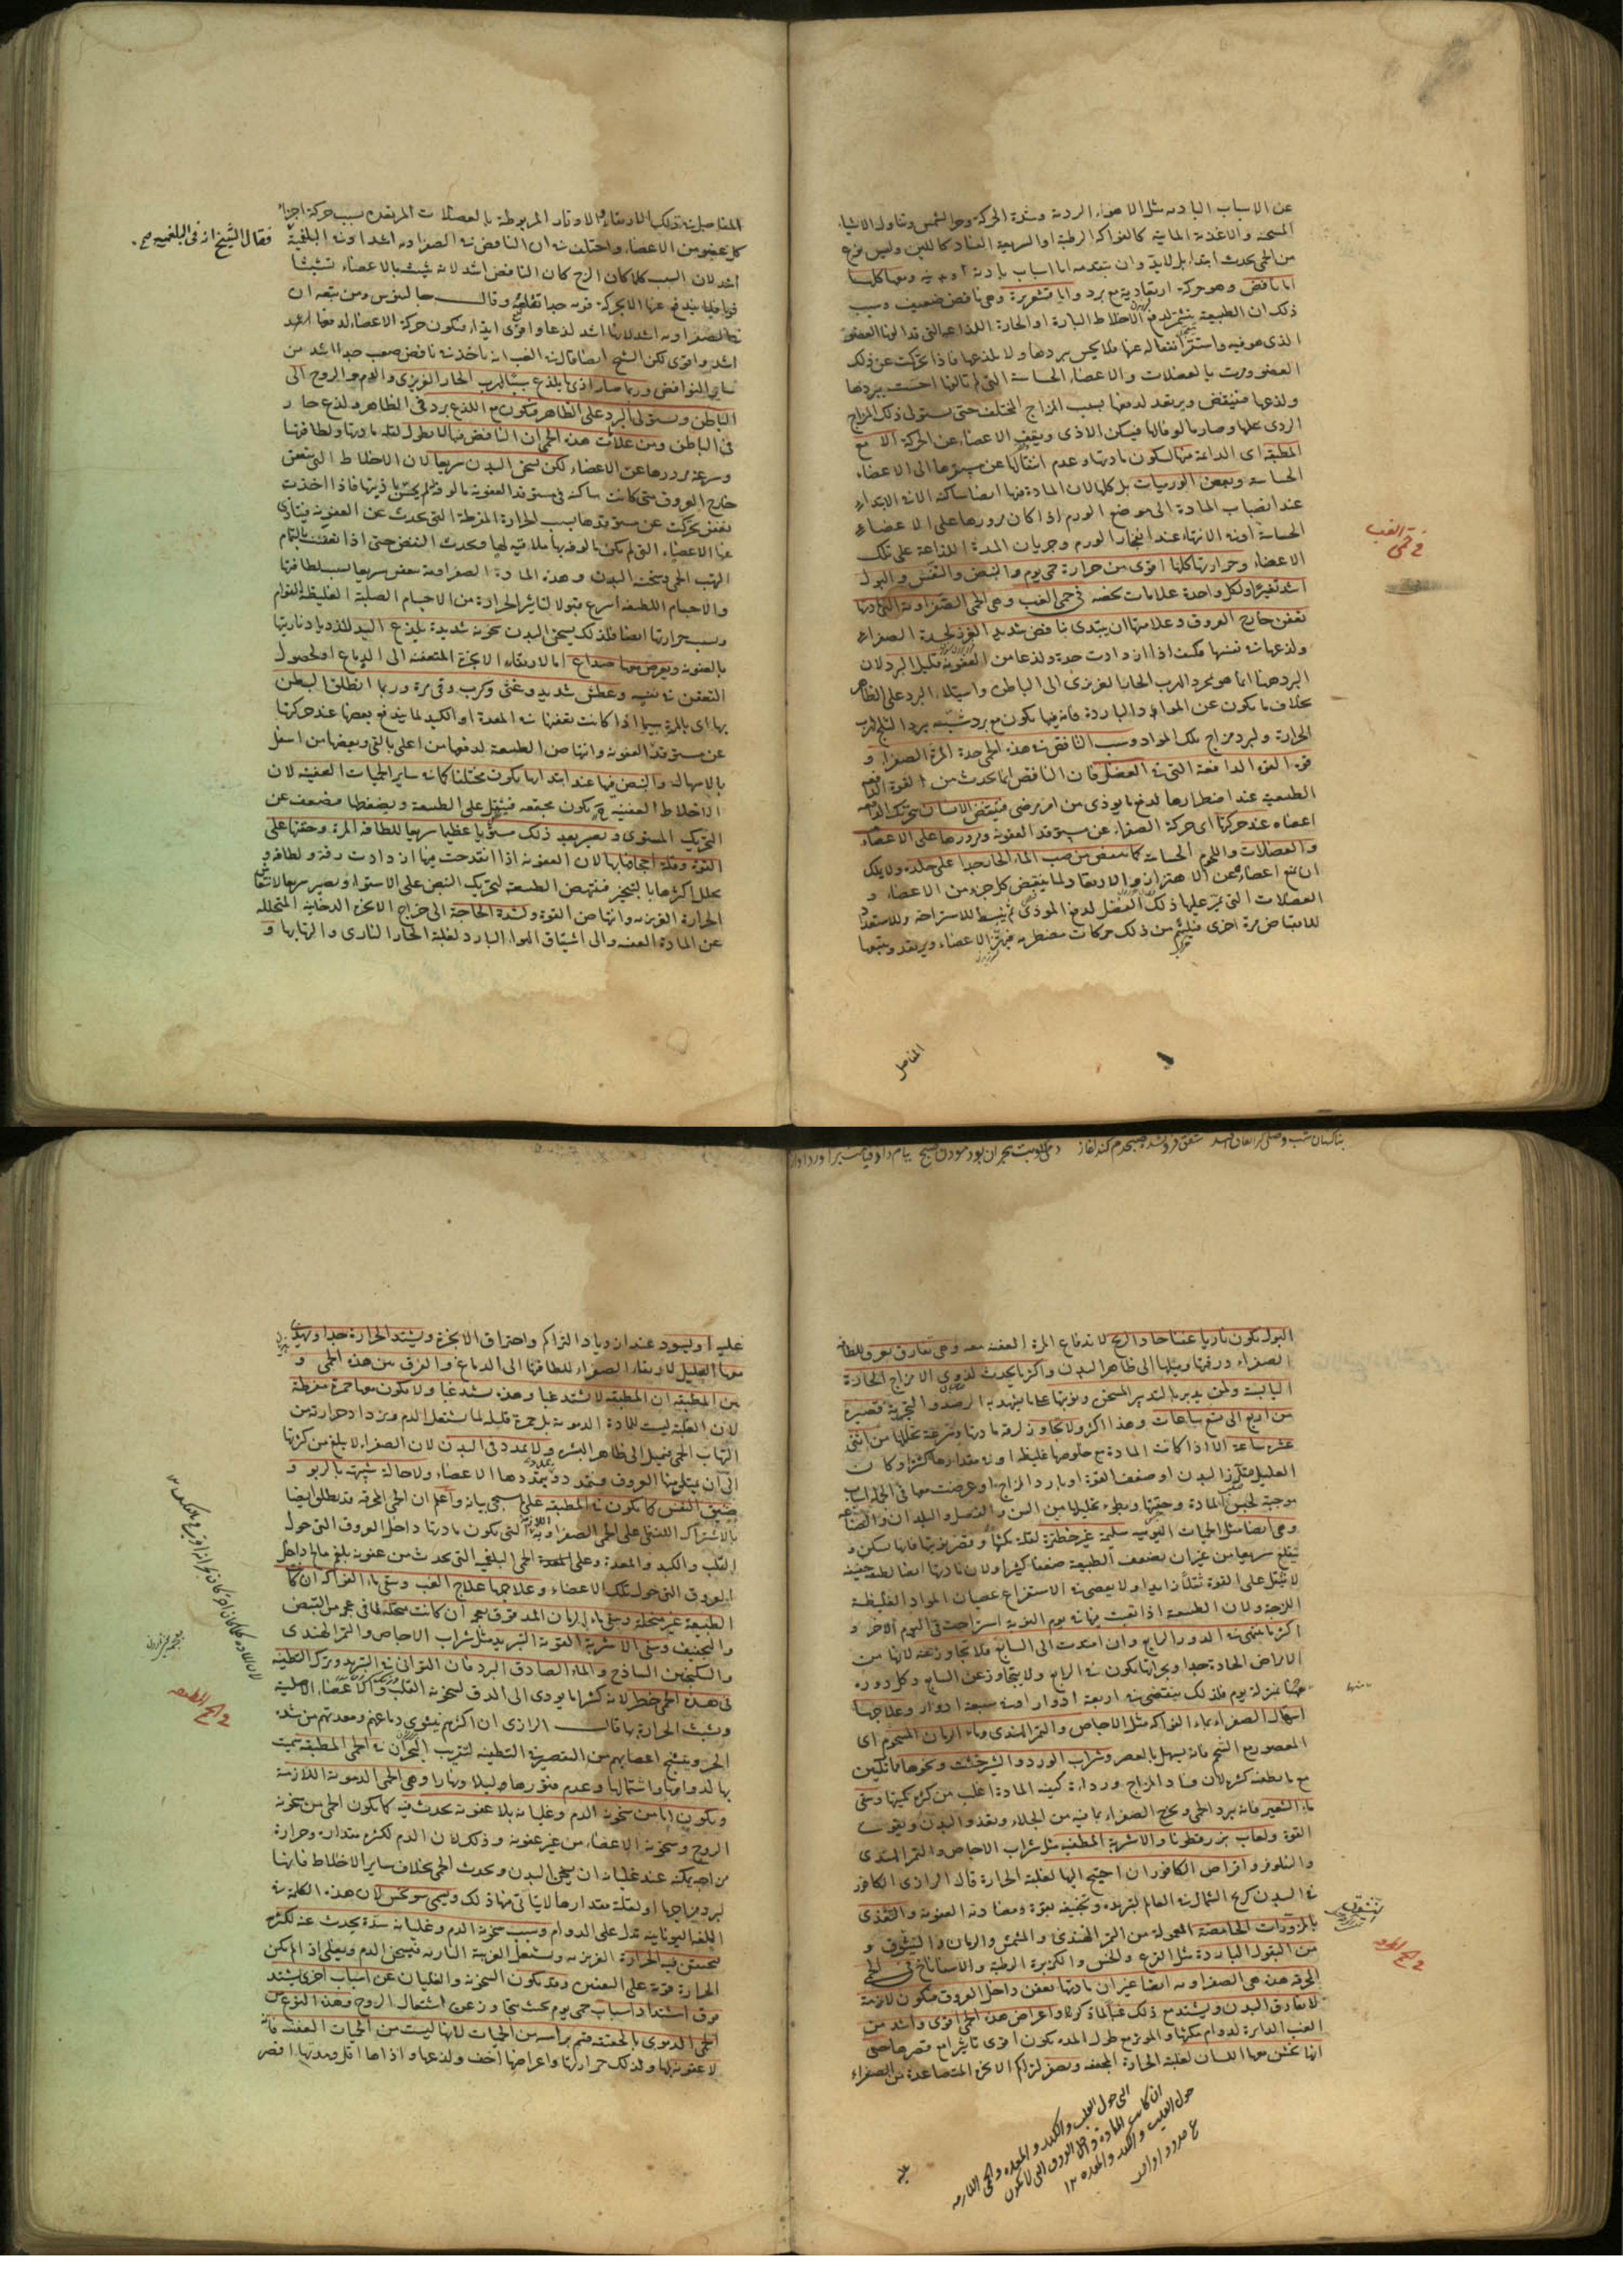 عن الاسباب البادية مثل الاهواء الردية وشدة الحركة وحر الشمس وتناول الاشياء
المسخنة والاغذية المائية كالفواكه الرطبة او السريعة الفساد كاللبن وليس نوع
من الحمى يحدث ابتداء بل لابد وان يتقدمه اما اسباب بادية او بدنية ومعها كلها
اما نافض وهو حركة ارتعادية مع برد واما قشعريرة وهى نافض ضعيف وسبب
ذلك ان الطبيعة تشمر لدفع الاخلاط الباردة او الحارة اللذاعة التى قد الفها العضو
الذى هو فيه واستقر انفعاله عنها فلا يحس ببردها ولا لذعها فاذا تحركت عن ذلك
العضو ومرت بالعضلات والاعضاء الحساسة التى لم تالفها احست ببردها
ولذعها فينتفض ويرتعد لدفعها بسبب المزاج المختلف حتى يستولى ذلك المزاج
الردى عليها وصار مالوفا لها فيسكن الاذى ويقف الاعضاء عن الحركة الا مع
المطبقة اى الدائمة منها لسكون مادتها وعدم انتقالها عن مستقرها الى الاعضاء
الحساسة وبعض الورميات بل كلها لان المادة فيها ايضا ساكنة الا فى الابتداء
عند انصباب المادة الى موضع الورم اذا كان مرورها على الاعضاء
الحساسة او فى الانتهاء عند انفجار الورم وجريان المدة اللذاعة على تلك
الاعضاء وحرارتها كلها اقوى من حرارة حمى يوم والنبض والنفس والبول
اشد تغيرا ولكل واحدة علامات تخصه فى حمى الغب وهى الحمى الصفراوية التى مادتها
تعفن خارج العروق وعلامتها ان يبتدى بنافض شديد الغرز لحدة الصفراء
ولذعها فى نفسها فكيف اذا ازدادت حدة ولذعا من العفونة قليل البرد لان
البرد ههنا انما هو لمجرد الهرب الحار الغريزى الى الباطن واستيلاء البرد على الظاهر
بخلاف ما يكون عن المواد الباردة فانه فيها يكون مع برد شبيه ببرد الثلج لهرب
الحرارة ولبرد مزاج تلك المواد وسبب النافض فى هذه الحمى حدة المرة الصفراء و
قوة القوة الدافعة التى فى العضل فان النافض انما يحدث من القوة الدافعة
الطبيعية عند اضطرارها لدفع ما يوذى من امر مرضى فينتفض الانسان بتحريك الدافعة
اعضاه عند حركتها اى حركة الصفراء عن مستوقد العفونة ومرورها على الاعضاء
والعضلات واللحوم الحساسة كما ينتفض من صب الماء الحار جدا على جلده ولا يملك
ان يمنع اعضاه عن الاهتزاز والارتعاد ولما ينقبض كل جزء من الاعضاء و
العضلات التى تمر عليها ذلك الفضل لدفع الموذى ثم ينبسط للاستراحة وللاستعداد
للانقباض مرة اخرى فيلتئم من ذلك حركات مضطربة فيهتز الاعضاء ويرتعد ويتبعها
فى حمى الغب
المفاصل
المفاصل فى ذلك الارتعاد والاوتار المربوطة بالعضلات المرتعدة بسبب حركة اجزاء
كل عضو من الاعضاء واختلف فى ان النافض فى الصفراوية اشد او فى البلغمية
فقال الشيخ انه فى البلغمية صح
اشد لان السبب كلما كان الزج كان النافض اشد لانه يتشبث بالاعضاء تشبثا
قويا فلما يندفع عنها الا بحركة قوية جدا تقلعه وقال جالينوس ومن تبعه ان
فى الصفراوية اشد لانها اشد لذعا واقوى ايذاء فتكون حركة الاعضاء لدفعها اشد
اشد واقوى لكن الشيخ ايضا قال فى الغب انه ياخذ فى نافض صعب جدا اشد من
ساير النوافض وربما صار اذى باللذع بسبب الهرب الحار الغريزى والدم والروح الى
الباطن ويستولى البرد على الظاهر فيكون مع اللذع برد فى الظاهر ولذع حار
فى الباطن ومن علامات هذه الحمى ان النافض فيها لا يطول لقلة مادتها ولطافتها
وسرعة مرورها عن الاعضاء لكن يسخن البدن سريعا لان الاخلاط التى يتعفن
خارج العروق متى كانت ساكنة فى مستوقد العفونة مالوفة لم يحس باذيتها فاذا اخذت
تعفن تحركت عن مستوقدها بسبب الحرارة المفرطة التى يحدث عن العفونة فيتاذى
عنها الاعضاء التى لم تكن مالوفة بها ملاقية لها فيحدث النفض حتى اذا تعفنت بالتمام
التهب الحمى وسخنت البدن وهذه المادة الصفراوية تعفن سريعا بسبب لطافتها
والاجسام اللطيفة اسرع قبولا لتاثير الحرارة من الاجسام الصلبة الغليظة القوام
وبسبب حرارتها ايضا فلذلك يسخن البدن سخونة شديدة يلذع اليد للذعها وناريتها
بالعفونة ويعرض معها صداع اما لارتقاء الابخرة المتعفنة الى الدماغ او لحصول
التعفن فى نفسه وعطش شديد وغثى وكرب وقى مرة وربما انطلق البطن
بها اى بالمرة سيما اذا كانت تعفنها فى المعدة او الكبد لما يندفع بعضها عند حركتها
عن مستوقد العفونة وانتهاض الطبيعة لدفعها من اعلى بالقى وبعضها من اسفل
بالاسهال والنبض فيها عند ابتدائها يكون مختلفا كما فى ساير الحميات العفنة لان
الاخلاط العفنة ح يكون مجتمعة فيثقل على الطبيعة ويضغطها فتضعف عن
التحريك المستوى ويصير بعد ذلك مستويا عظيما سريعا للطافة المرة وخفتها على
القوة وقلة اجحافها بها لان العفونة اذا انقدحت فيها ازدادت رقة ولطافة و
تحلل اكثرها بالتبخير فتنهض الطبيعة لتحريك النبض على الاستواء ويصير سريعا لانتعاش
الحرارة الغريزية وانتهاض القوة ولشدة الحاجة الى خراج الابخرة الدخانية المتحللة
عن المادة العفنة والى استنشاق الهواء البارد لغلبة الحار النارى والتهابها و
البول يكون ناريا عفنا حاد الريح لاندفاع المرة العفنة معه وهى تفارق بعرق للطافة
الصفراء ورقتها وميلها الى ظاهر البدن واكثر ما يحدث لذوى الامزاج الحارة
اليابسة ولمن يدبر بالتدبير المسخن ونوبتها على ما يشهد به الرصد والتجربة قصيرة
من اربع الى تسع ساعات وهذا اكثر ولا يتجاوز لرقة مادتها وسرعة تحللها من اثنتى
عشرة ساعة الا اذا كانت المادة مع خلوصها غليظة او فى مقدارها كثيرا وكان
العليل متكاثر البدن او ضعيف القوة او بارد المزاج او عرضت معها فى الجملة اسباب
موجبة لحبس المادة وحقنها وبطوء تحليلها من السن والفصل والبلدان والصناعة
وهى ايضا مثل الحميات اليومية سليمة غير خطرة لقلة مكثها وقصر نوبتها فانها تسكن و
تقلع سريعا من غير ان يضعف الطبيعة ضعفا كثيرا ولان مادتها ايضا لطيفة خفيفة
لا يثقل على القوة ثقلا زايدا ولا يعصى فى الاستفراغ عصيان المواد الغليظة
اللزجة ولان الطبيعة اذا تعبت فيها فى يوم النوبة استراحت فى اليوم الاخر و
اكثر ما ينتهى فى الدور الرابع وان امتدت الى السابع فلا يتجاوز عنه لانها من
الامراض الحادة جدا وبحرانها يكون فى الرابع ولا يتجاوز عن السابع وكل دورة
ههنا بمنزلة يوم فلذلك ينقضى فى اربعة ادوار او فى سبعة ادوار وعلاجها
اسهال الصفراء بماء الفواكه مثل الاجاص والتمر الهندى وماء الرمان المشحوم اى
المعصور مع الشحم فانه يسهل بالعصر وشراب الورد والشيرخشت ونحوها ما تلين
مع ما يطفيه كثيرا لان فساد المزاج ورداءة كيفية المادة اغلب من كثرة كميتها وسقى
ماء الشعير فانه يبرد الحمى ويخرج الصفراء بما فيه من الجلاء ويغذو البدن ويقوى
القوة ولعاب بزر قطونا والاشربة المطفية مثل شراب الاجاص والتمر الهندى
والنيلوفر واقراص الكافور ان احتيج اليها لغلبة الحرارة قال الرازى الكافور
فى البدن كريح الشمال فى العالم لتبريده وتجفيفه بقوة ومضادته العفونة والتغذى
بالمزورات الحامضة المعمولة من التمر الهندى والمشمش والرمان والنيشوق و
من البقول الباردة مثل القرع والخس والكزبرة الرطبة والاسفاناخ فى الحمى
المحرقة هذه هى الصفراوية ايضا غير ان مادتها يعفن داخل العروق فيكون لازمة
لا يفارق البدن ويشتد مع ذلك غبا لما ذكر واعراض هذه الحمى اقوى واشد من
الغب الدايرة لدوام مكثها والموثر مع طول المدة يكون اقوى تاثيرا مع قصرها حتى
انها يخشن معها اللسان لغلبة الحرارة المجففة ويصفر لتراكم الابخرة المتصاعدة من الصفراء
فى الحمى المحرقة
التى حول القلب والكبد والمعدة والحمى اللازمة
ان كانت المادة داخل العروق التى لا يكون
حول القلب والكبد والمعدة ١٢
عليه
عليه او يسود عند ازدياد التراكم واحتراق الابخرة ويشتد الحرارة جدا ويهذى
معها العليل لارتقاء الصفراء للطافتها الى الدماغ والفرق بين هذه الحمى و
بين المطبقة ان المطبقة لا تشتد غبا وهذه تشتد غبا ولا يكون معها حمرة مفرطة
لان الغلبة ليست للمادة الدموية بل حمرة قليلة لما يشتعل الدم ويزداد حرارته من
التهاب الحمى فيميل الى ظاهر البشرة ولا تمدد فى البدن لان الصفراء لا يبلغ من كثرتها
الى ان يمتلى منها العروق فيتمدد ويتمددها الاعضاء ولا حالة شبيهة بالربو و
ضيق النفس كما يكون فى المطبقة على ما سيجى بيانه واعلم ان الحمى المحرقة قد يطلق ايضا
بالاشتراك اللفظى على الحمى الصفراوية اللازمة التى يكون مادتها داخل العروق التى حول
القلب والكبد والمعدة وعلى الحمى البلغمية التى يحدث من عفونة بلغم مالح داخل
العروق التى حول تلك الاعضاء وعلاجها علاج الغب وسقى ماء الفواكه ان كانت
الطبيعة غير منحلة وسقى ماء الرمان المدقوق بعجمه ان كانت منحلة لما فى عجمه من القبض
والتجفيف وسقى الاشربة القوية التبريد مثل شراب الاجاص والتمر الهندى
والسكنجبين الساذج والماء الصادق البرد فان التوانى فى التبريد وترك التطفية
فى هذه الحمى خطر لانه كثيرا ما يودى الى الدق لسخونة القلب والاعضاء الاصلية
وتشبث الحرارة بها قال الرازى ان اكثرهم يشوى دماغهم ومعدتهم من شدة
الحر ويتشنج اعصابهم من التقصير فى التطفية لتقريب البحران فى الحمى المطبقة سميت
بها لدوامها واشتمالها وعدم فتورها ليلا ونهارا وهى الحمى الدموية اللازمة
ويكون اما من سخونة الدم وغليانه بلا عفونة يحدث فيه كما يكون الحمى من سخونة
الروح وسخونة الاعضاء من غير عفونة وذلك لان الدم لكثرة مقداره وحرارة
مزاجه يمكنه عند غليانه ان يسخن البدن ويحدث الحمى بخلاف ساير الاخلاط فانها
لبرد مزاجها او لقلة مقدارها لا يتاتى منها ذلك ويسمى سونوخس لان هذه الكلمة فى
اللغة اليونانية تدل على الدوام وسبب سخونة الدم وغليانه سدة يحدث عنه لكثرته
فيحتقن فيه الحرارة الغريزية ويشتعل الغريبة النارية فيسخن الدم ويغلى اذا لم يكن
الحرارة قوية على التعفين وقد يكون السخونة والغليان عن اسباب اخرى يشتد
فوق اشتداد اسباب حمى يوم بحيث يتجاوز عن اشتعال الروح وهذا النوع من
الحمى الدموى بالحقيقة قسم براسه من الحميات لانها ليست من الحميات العفنة فانه
لا عفونة لها ولذلك حرارتها واعراضها اخف ولذعها واذاها اقل ومدتها اقصر
فى الحمى المطبقة